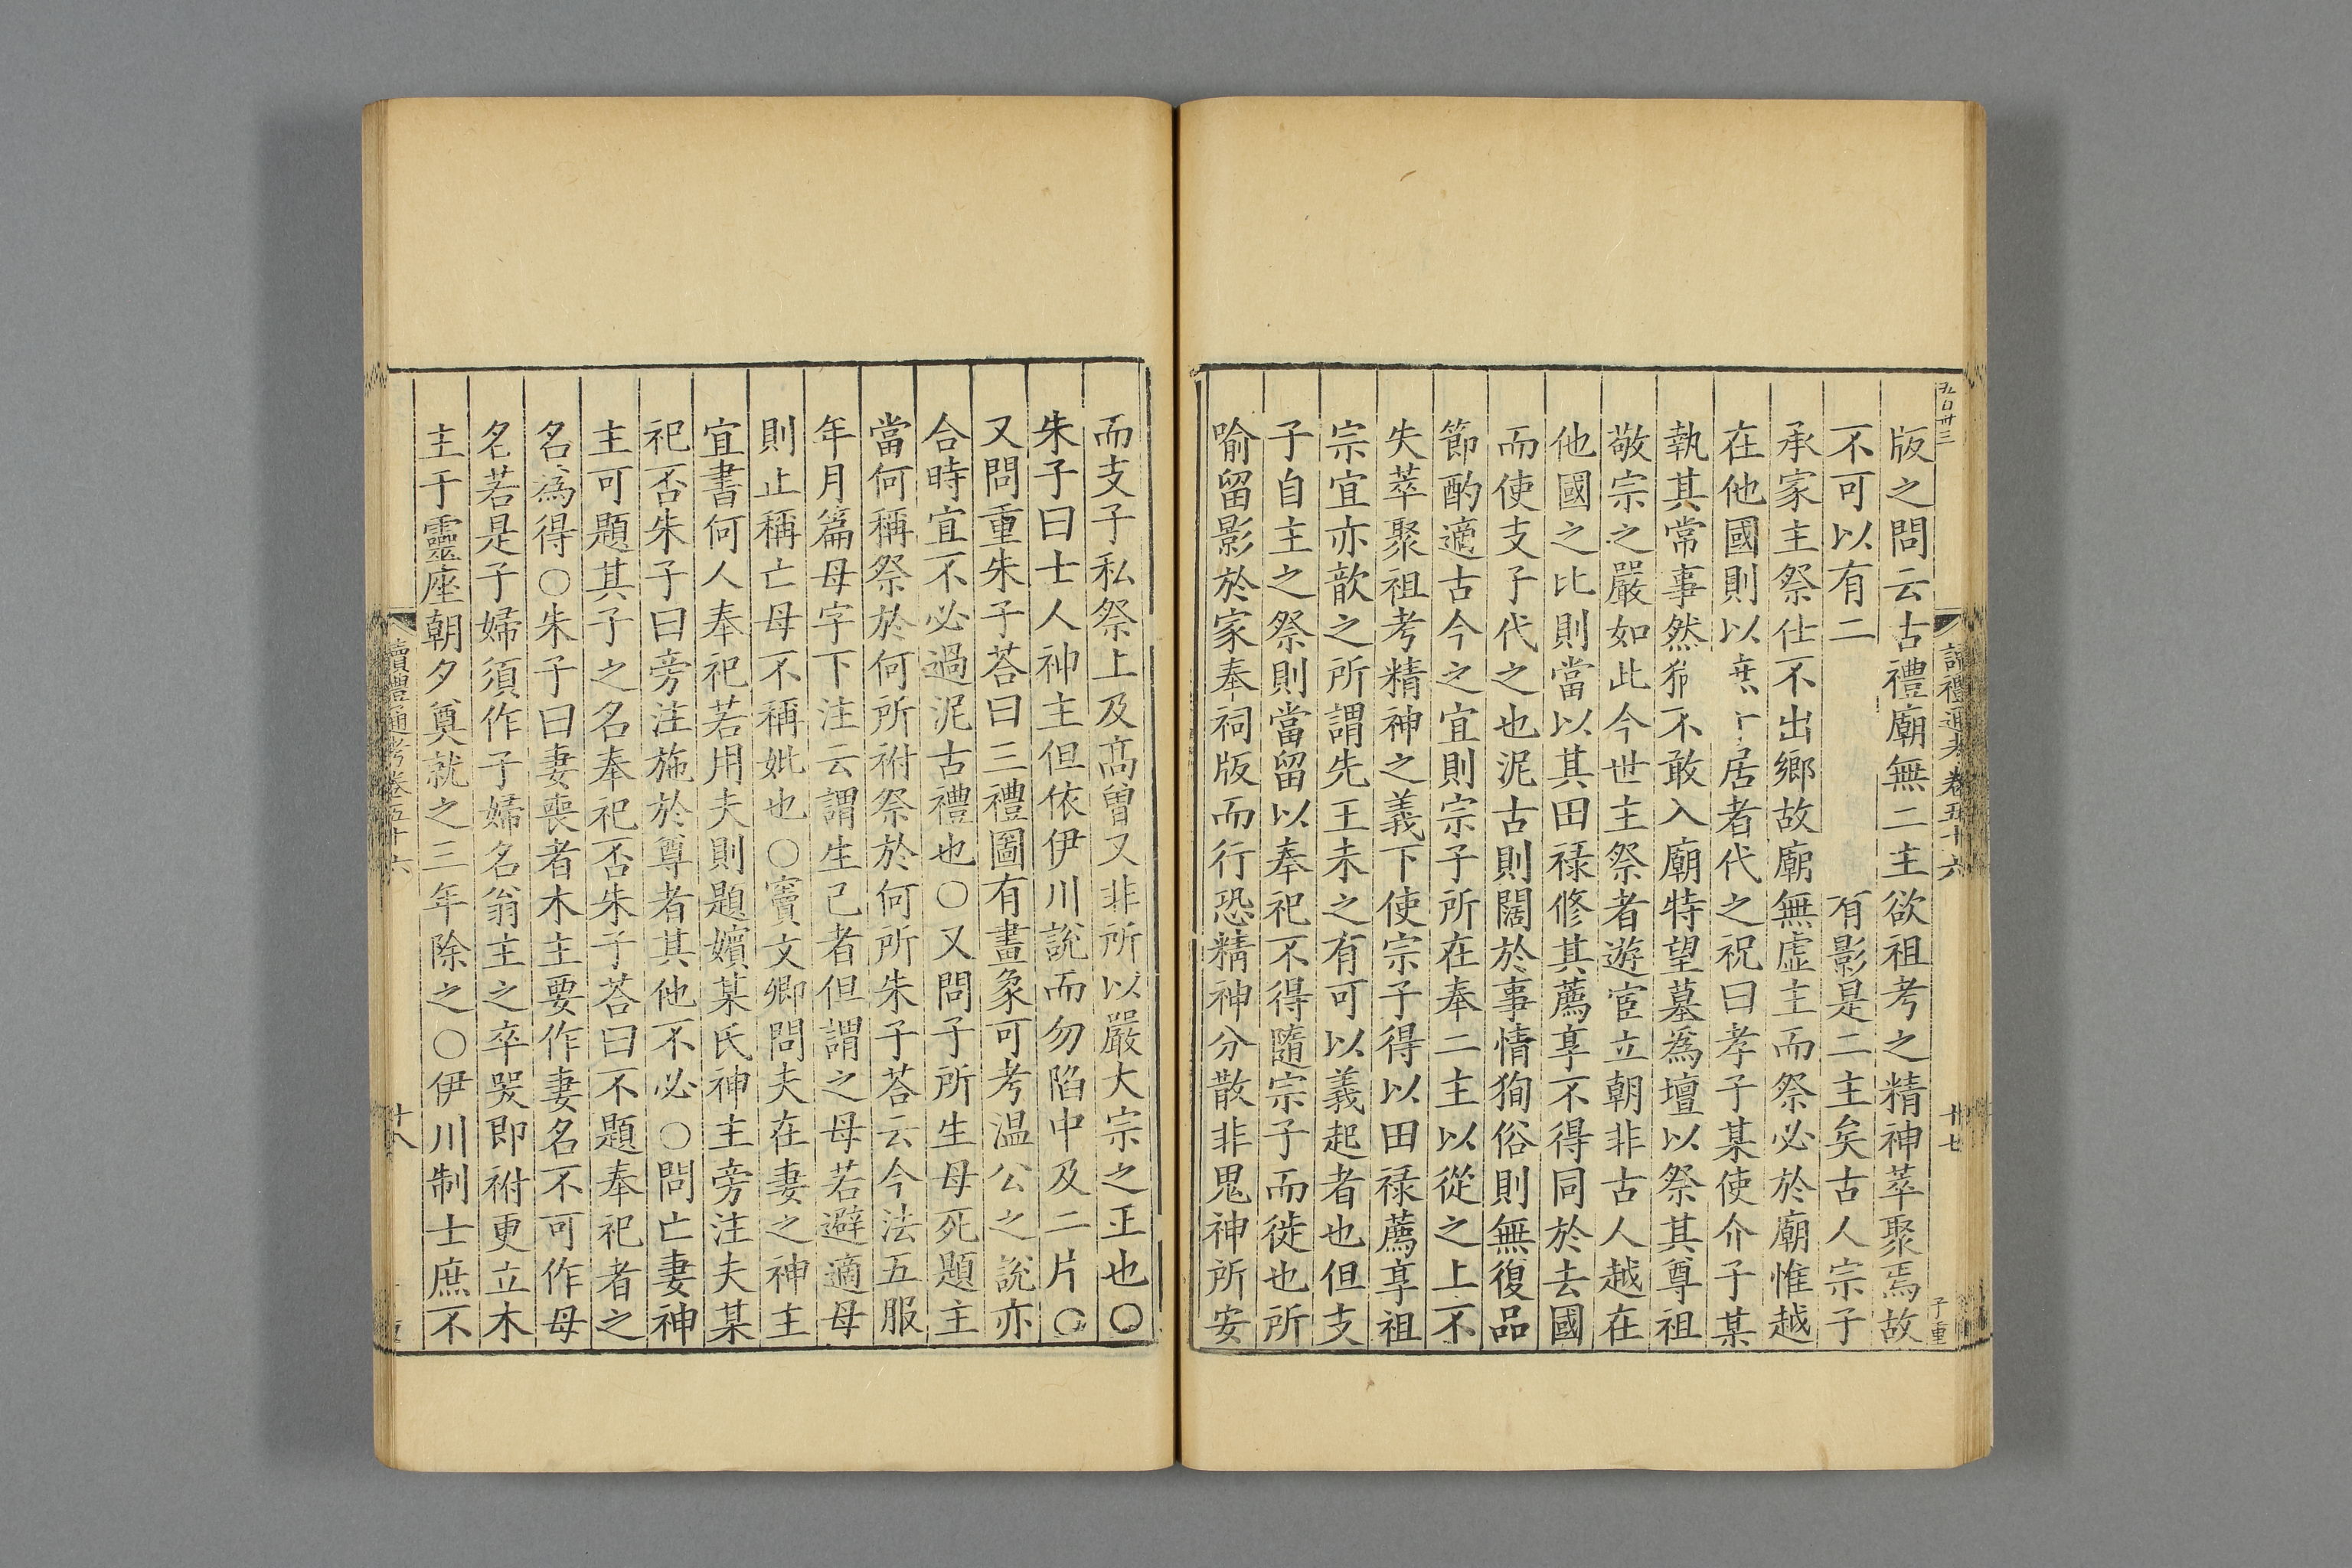 五百卅三
讀禮通考 卷五十六
廿七
子重
版之問云古禮廟無二主欲祖考之精神萃聚焉故
不可以有二 有影是二主矣古人宗子
承家主祭仕不出鄉故廟無虛主而祭必於廟惟越
在他國則以 居者代之祝曰孝子某使介子某
執其常事然猶不敢入廟特望墓為壇以祭其尊祖
敬宗之嚴如此今世主祭者遊宦立朝非古人越在
他國之比則當以其田祿修其薦享不得同於去國
而使支子代之也泥古則闊於事情狥俗則無復品
節酌適古今之宜則宗子所在奉二主以從之上不
失萃聚祖考精神之義下使宗子得以田祿薦享祖
宗宜亦歆之所謂先王未之有可以義起者也但支
子自主之祭則當留以奉祀不得隨宗子而徙也所
喻留影於家奉祠版而行恐精神分散非鬼神所安
而支子私祭上及高曾又非所以嚴大宗之正也〇
朱子曰士人神主但依伊川說而勿陷中及二片〇
又問重朱子荅曰三禮圖有畫象可考温公之說亦
合時宜不必過泥古禮也〇又問子所生母死題主
當何稱祭於何所祔祭於何所朱子荅云今法五服
年月篇母字下注云謂生己者但謂之母若避適母
則止稱亡母不稱妣也〇竇文卿問夫在妻之神主
宜書何人奉祀若用夫則題嬪某氏神主旁注夫某
祀否朱子曰旁注施於尊者其他不必〇問亡妻神
主可題其子之名奉祀否朱子荅曰不題奉祀者之
名為得〇朱子曰妻喪者木主要作妻名不可作母
名若是子婦須作子婦名翁主之卒哭即祔更立木
主于靈座朝夕奠就之三年除之〇伊川制士庶不
讀禮通考卷五十六
十八